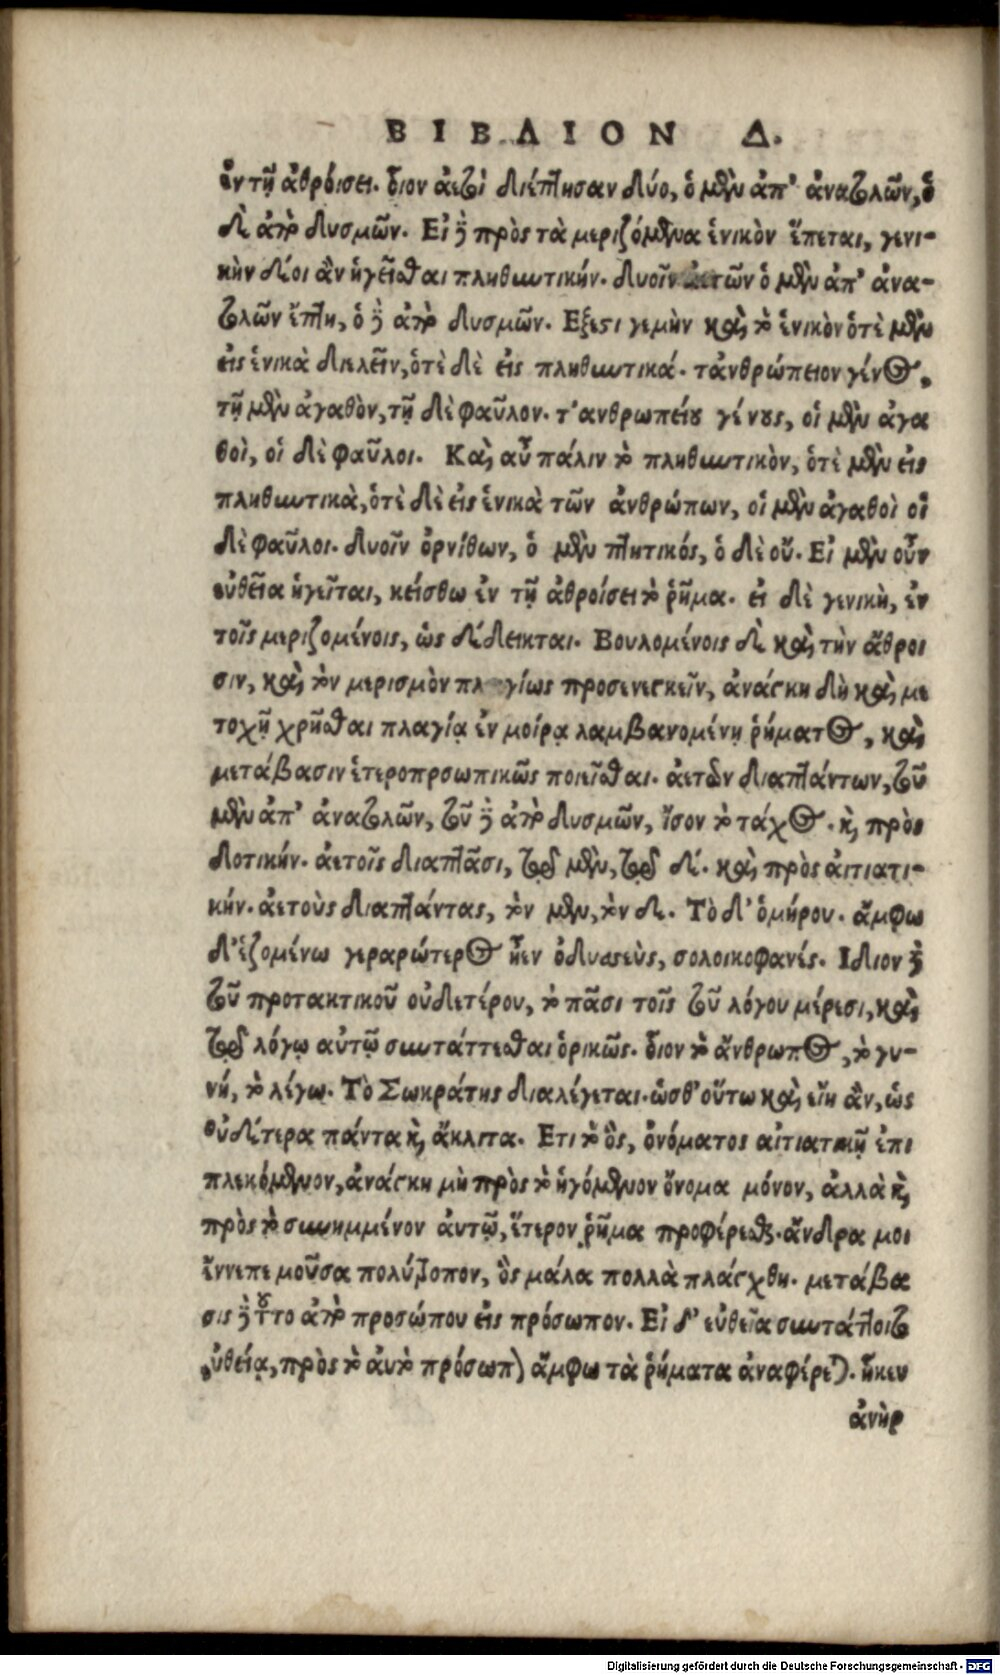 ΒΙΒΛΙΟΝ Δ.
ἐν τῇ ἀθρόισει. οἷον ἀετοὶ διέπτησαν δύο, ὁ μὲν ἀπ' ἀνατολῶν, ὁ
δὲ ἀπὸ δυσμῶν. Εἰ δὲ πρὸς τὰ μεριζόμενα ἑνικὸν ἕπεται, γενι-
κὴν δέοι ἂν ἡγεῖσθαι πληθυντικήν. δυοῖν ἀετῶν ὁ μὲν ἀπ' ἀνα-
τολῶν ἔπτη, ὁ δὲ ἀπὸ δυσμῶν. Εξεστι γεμὴν καὶ τὸ ἑνικὸν ὁτὲ μὲν
εἰς ἑνικὰ διελεῖν, ὁτὲ δὲ εἰς πληθυντικά. τἀνθρώπειον γένος,
τῇ μὲν ἀγαθὸν, τῇ δὲ φαῦλον. τ' ανθρωπείου γένους, οἱ μὲν ἀγα
θοὶ, οἱ δὲ φαῦλοι. Καὶ αὖ πάλιν τὸ πληθυντικὸν, ὁτὲ μὲν εἰς
πληθυντικὰ, ὁτὲ δὲ εἰς ἑνικὰ τῶν ἀνθρώπων, οἱ μὲν ἀγαθοὶ οἱ
δὲ φαῦλοι. δυοῖν ὀρνίθων, ὁ μὲν πτητικός, ὁ δὲ οὔ. Εἰ μὲν οὖν
εὐθεῖα ἡγεῖται, κείσθω ἐν τῇ ἀθροίσει τὸ ῥῆμα. ει δὲ γενικὴ, ἐν
τοῖς μεριζομένοις, ὡς δέδεικται. Βουλομένοις δὲ καὶ τὴν ἄθροι
σιν, καὶ τὸν μερισμὸν πλαγίως προσενεγκεῖν, ἀνάγκη δὴ καὶ με
τοχῇ χρῆσθαι πλαγίᾳ ἐν μοίρᾳ λαμβανομένη ῥήματος, καὶ
μετάβασιν ἑτεροπρσωπικῶς ποιεῖσθαι. ἀετῶν διαπτάντων, τοῦ
μὲν ἀπ' ἀνατολῶν, τοῦ δὲ ἀπὸ δυσμῶν, ἴσον τὸ τάχος. καὶ πρὸς
δοτικήν. ἀετοῖς διαπτᾶσι, τῷ μὲν, τῷ δέ. καὶ πρὸς ἀιτιατι-
κήν. ἀετοὺς διαπτάντας, τὸν μὲν, τὸν δὲ. Τὸ δ' ὁμήρου. ἄμφω
δ' ἑζομένω γεραρώτερος ἦεν ὀδυσσεὺς, σολοικοφανές. Ιδιον δὲ
τοῦ προτακτικοῦ οὐδετέρου, τὸ πᾶσι τοῖς τοῦ λόγου μέρεσι, καὶ
τῷ λόγῳ αὐτῷ συντάττεσθαι ὁρικῶς. οἷον τὸ ἄνθρωπος, τὸ γυ-
νή, τὸ λέγω. Τὸ Σωκράτης διαλέγεται. ὡσθ' οὕτω καὶ εἴη ἂν, ὡς
οὐδέτερα πάντα καὶ ἄκλιτα. Ετι τὸ ὃς, ὀνόματος αἰτιατικῇ ἐπι
πλεκόμενον, ἀνάγκη μὴ πρὸς τὸ ἡγόμενον ὄνομα μόνον, ἀλλὰ καὶ
πρὸς τὸ συνημμένον ἀυτῷ, ἕτερον ῥῆμα προφέρεσθαι. ἄνδρα μοι
ἔννεπε μοῦσα πολύτροπον, ὃς μάλα πολλὰ πλάγχθη. μετάβα
σις δὲ τοῦτο ἀπὸ προσώπου εἰς πρόσωπον. Εἰ δ' εὐθεῖα συντάττοιτο
εὐθείᾳ, πρὸς τὸ ἀυτὸ πρόσωπον ἄμφω τὰ ῥήματα ἀναφέρεται. ἧκεν
ἀνὴρ
Digitalisierung gefördert durch die Deutsche Forschungsgemeinschaft - DFG